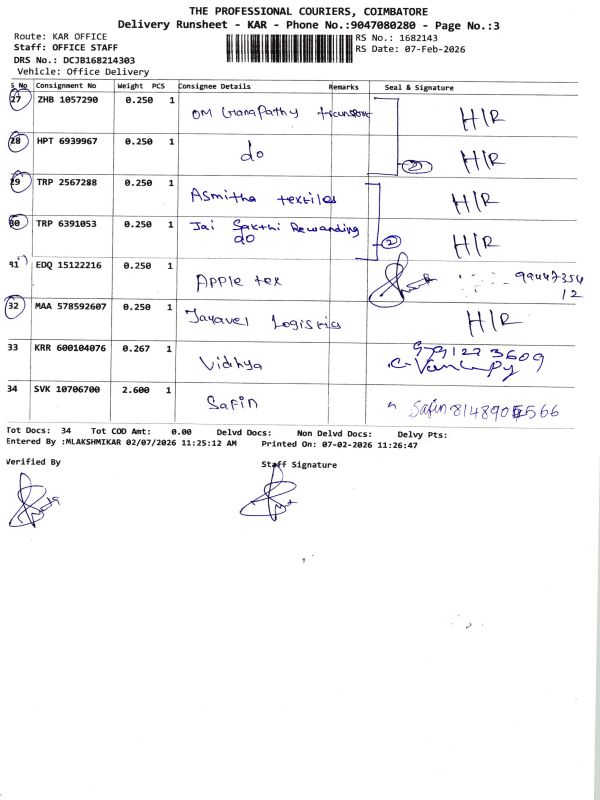 THE PROFESSIONAL COURIERS, COIMBATORE
Delivery Runsheet - KAR - Phone No.:9047080280 - Page No.:3
Route: KAR OFFICE
RS No.: 1682143
Staff: OFFICE STAFF
RS Date: 07-Feb-2026
DRS No.: DCJB168214303
Vehicle: Office Delivery
S No Consignment No Weight PCS Consignee Details Remarks Seal & Signature
27 ZHB 1057290 0.250 1 OM Ganapathy transport H/R
28 HPT 6939967 0.250 1 do H/R
2
29 TRP 2567288 0.250 1 Asmitha textiles H/R
30 TRP 6391053 0.250 1 Jai Sakthi Rewanding do H/R
2
31 EDQ 15122216 0.250 1 Apple tex 99447354
12
32 MAA 578592607 0.250 1 Jayavel Logistics H/R
33 KRR 600104076 0.267 1 Vidhya 9791223609
34 SVK 10706700 2.600 1 Safin Safin 8148905566
Tot Docs: 34 Tot COD Amt: 0.00 Delvd Docs: Non Delvd Docs: Delvy Pts:
Entered By :MLAKSHMIKAR 02/07/2026 11:25:12 AM Printed On: 07-02-2026 11:26:47
Verified By Staff Signature